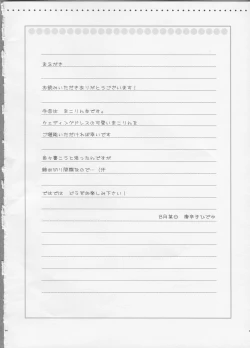 まえがき
お読みいただきありがとうございます！
今回は まこりんをです。
ウェディングドレスの可愛いまこりんを
ご堪能いただければ幸いです
色々書こうと思ったんですが
締め切り間際なので… (汗
ではでは どうぞお楽しみ下さい！